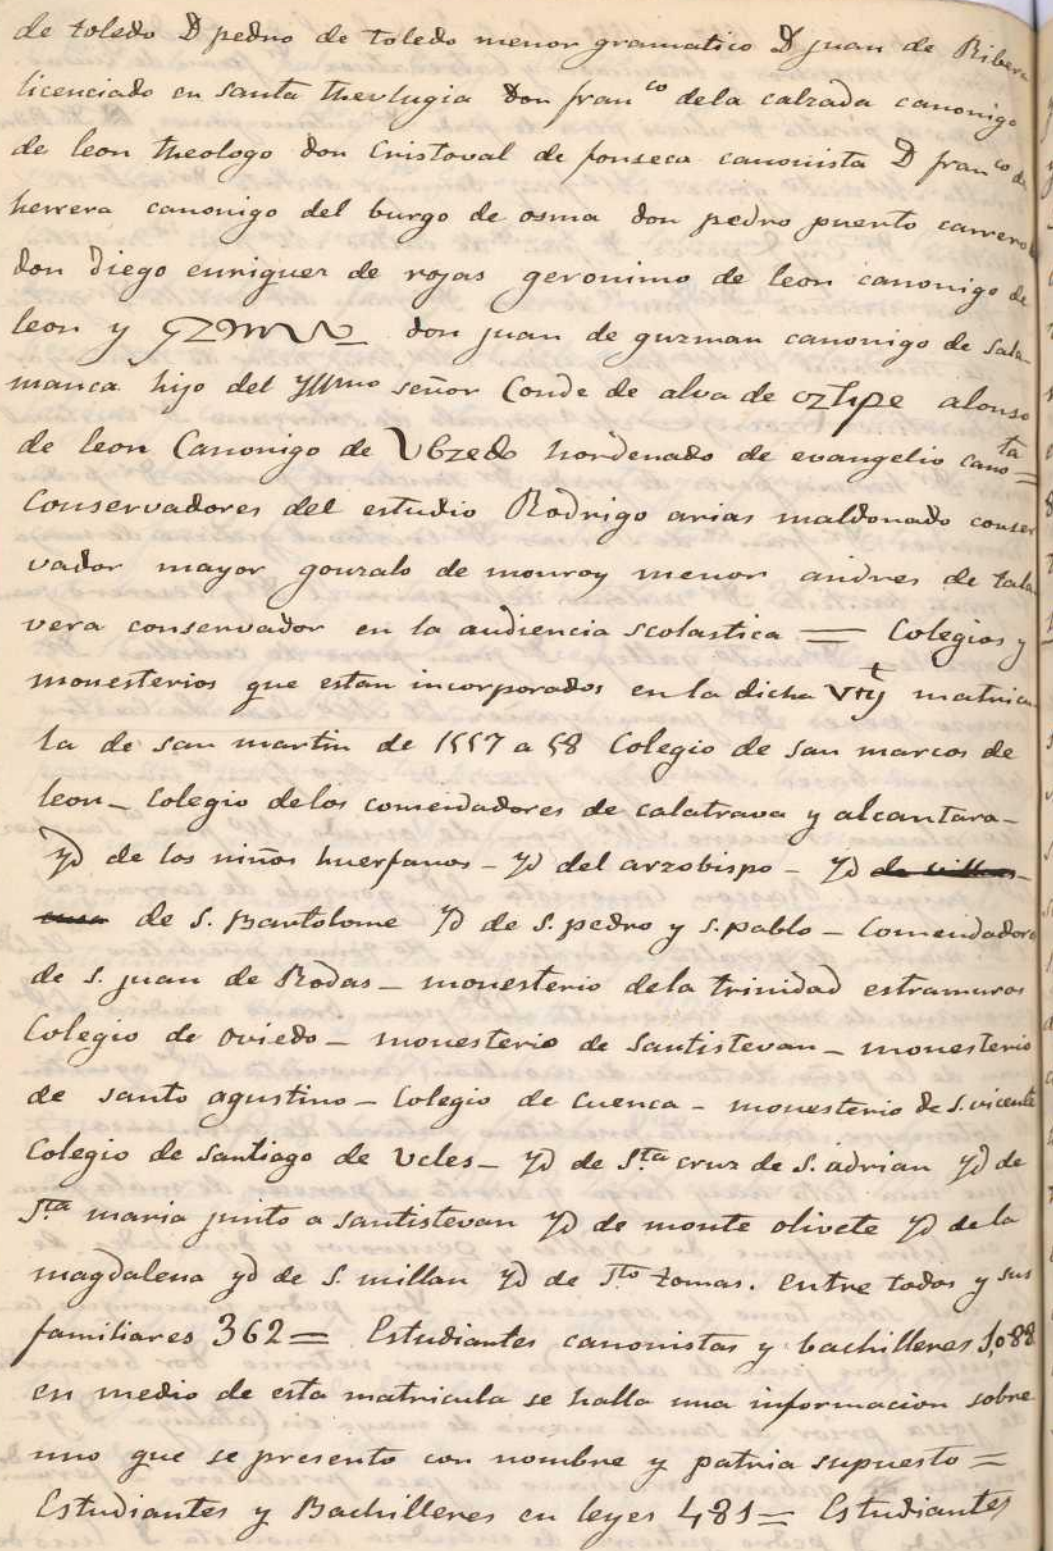 de toledo D pedro de toledo menor gramatico D juan de Ribera
licenciado en santa theulugia don fran^co dela calzada canonigo
de leon theologo don Cristoval de fonseca canonista D fran^co de
herrera canonigo del burgo de osma don pedro puerto carrero
don diego enriquez de rojas geronimo de leon canonigo de
leon y don juan de guzman canonigo de sala-
manca hijo del Yllmo señor Conde de alva de alonso
de leon Canonigo de hordenado de evangelio cano^ta =
Conservadores del estudio Rodrigo arias maldonado conser
vador mayor gonzalo de monroy menor andres de tala
vera conservador en la audiencia scolastica = Colegios y
monesterios que estan incorporados en la dicha matricu
la de san martin de 1557 a 58 Colegio de san marcos de
leon_ Colegio delos comendadores de calatrava y alcantara-
yd de los niños huerfanos - yd del arzobispo - yd de villaes-
cusa de S. Bartolome yd de S. pedro y S. pablo - Comendadores
de S. juan de Rodas_ monesterio dela trinidad estramuros
Colegio de oviedo - monesterio de santistevan - monesterio
de santo agustino - Colegio de Cuenca - monesterio de S. vicente
Colegio de santiago de Ucles_ yd de S.^ta cruz de S. adrian yd de
S.^ta maria junto a santistevan yd de monte olivete yd de la
magdalena yd de S. millan yd de S.^to tomas. entre todos y sus
familiares 362 = Estudiantes canonistas y bachilleres 1,088
en medio de esta matricula se halla una informacion sobre
uno que se presento con nombre y patria supuesto =
Estudiantes y Bachilleres en leyes 481 = Estudiantes